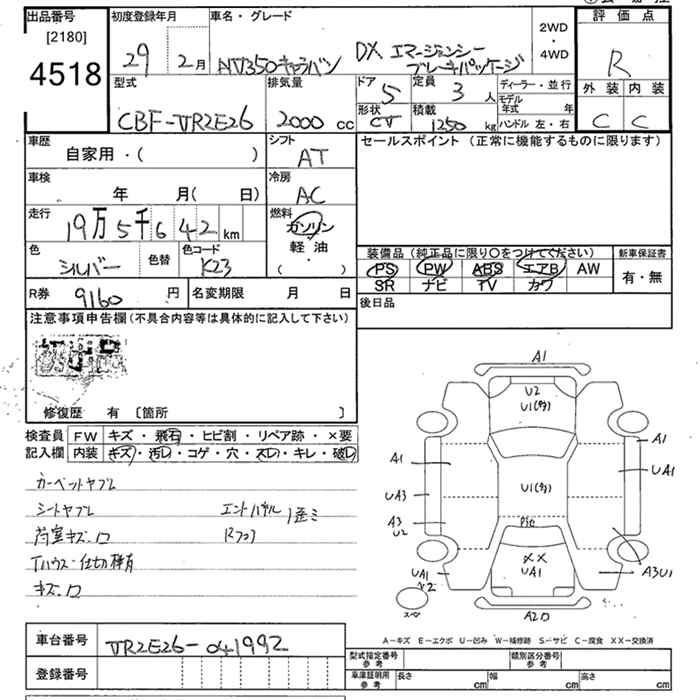 出品番号
[2180]
4518
初度登録年月
29 2月
車名・グレード
NV350キャラバン
DX エマージェンシー
ブレーキパッケージ
2WD
・
4WD
評価点
R
外装 内装
C C
型式
CBF-VR2E26
排気量
2000 cc
ドア
5
定員
3 人
形状
CV
積載
1250 kg
ディーラー・並行
モデル
年式 年
ハンドル 左・右
車歴
自家用・( )
シフト
AT
セールスポイント (正常に機能するものに限ります)
車検
年 月( 日)
冷房
AC
走行
19万5千642 km
燃料
ガソリン
軽油
( ・ )
色
シルバー
色替
色コード
K23
装備品 (純正品に限り○をつけてください)
PS PW ABS エアB AW
SR ナビ TV カワ
新車保証書
有・無
R券
9160 円
名変期限 月 日
後日品
注意事項申告欄(不具合内容等は具体的に記入して下さい)
修復歴 有 〔箇所 〕
検査員
記入欄
FW キズ・飛石・ヒビ割・リペア跡・×要
内装 キズ・汚レ・コゲ・穴・スレ・キレ・破レ
カーペットヤブレ
シートヤブレ
荷室キズ.ロ
Tハウス・仕切棒有
キズ.ロ
A1
U2
U1(多)
A1
A1
UA1
U1(多)
UA3
A3
U2
××
UA1
UA1
A3U1
A2ロ
A－キズ E－エクボ U－凹み W－補修跡 S－サビ C－腐食 XX－交換済
車台番号
VR2E26-041992
登録番号
型式指定番号
参考
類別区分番号
参考
車庫証明用
参考
長さ cm
幅 cm
高さ cm